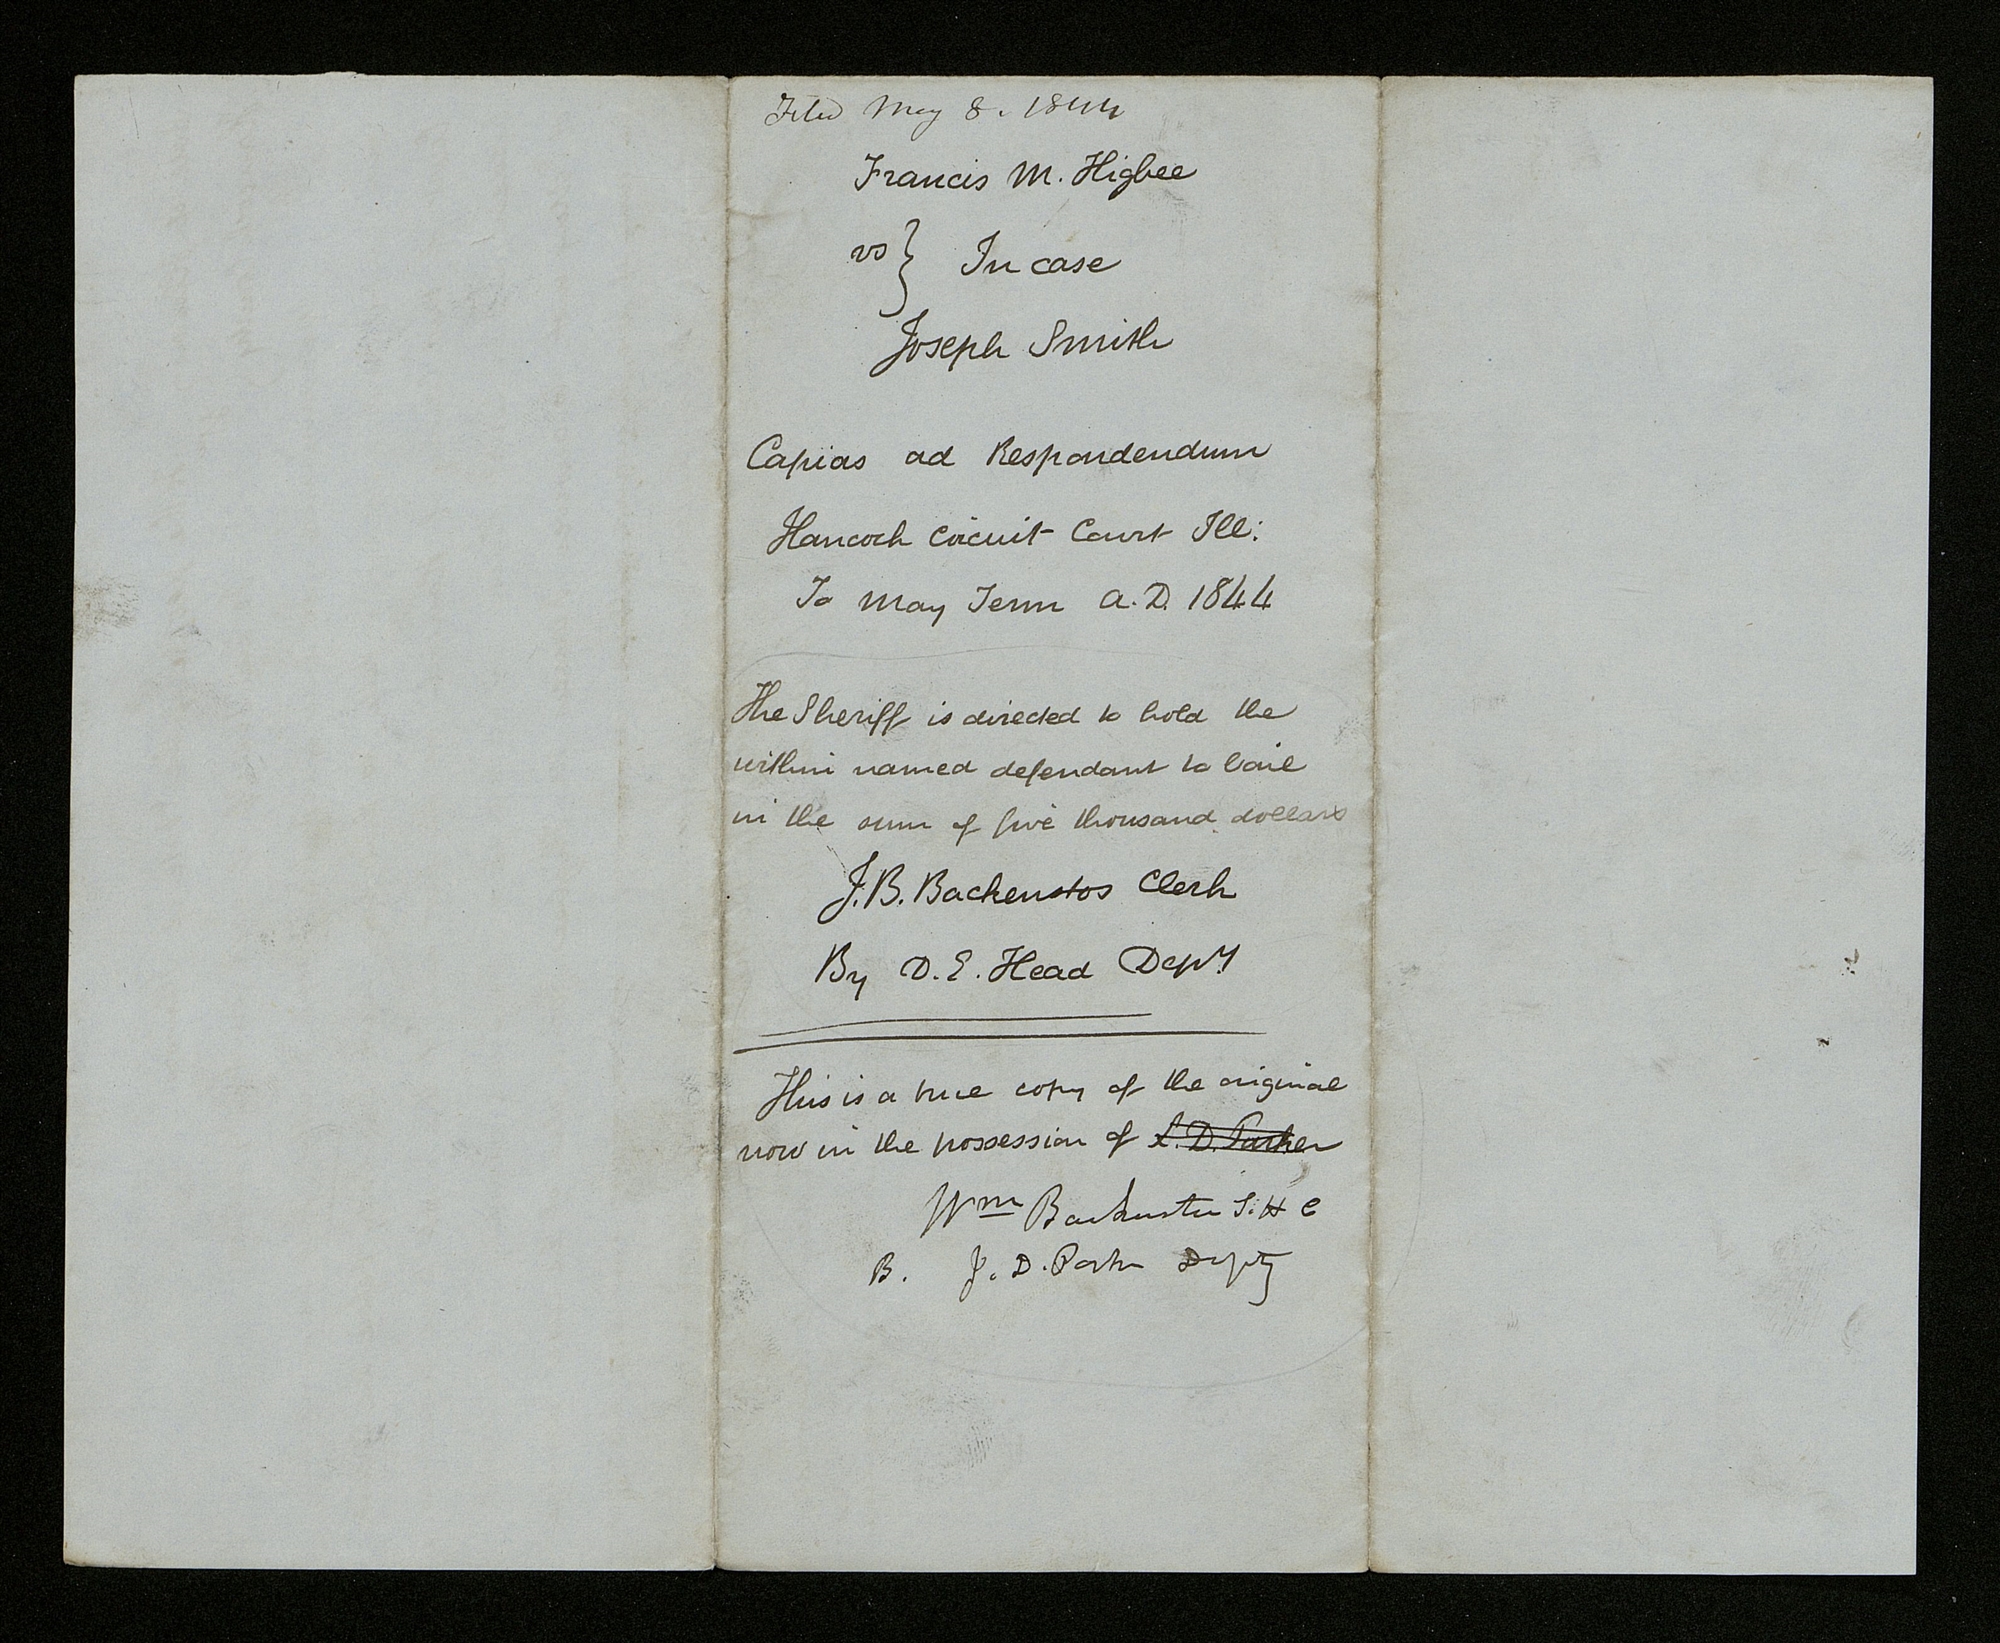 Filed May 8. 1844
Francis M. Higbee
vs } In case
Joseph Smith
Capias ad Respondendum
Hancock Circuit Court Ill:
To May Term A.D. 1844
The Sheriff is directed to hold the
within named defendant to bail
in the sum of five thousand dollars
J.B. Backenstos Clerk
By D.E. Head Depy
This is a true copy of the original
now in the possession of J. D. Parker
Wm Backenstos S. H C
B. J. D. Parker Depty